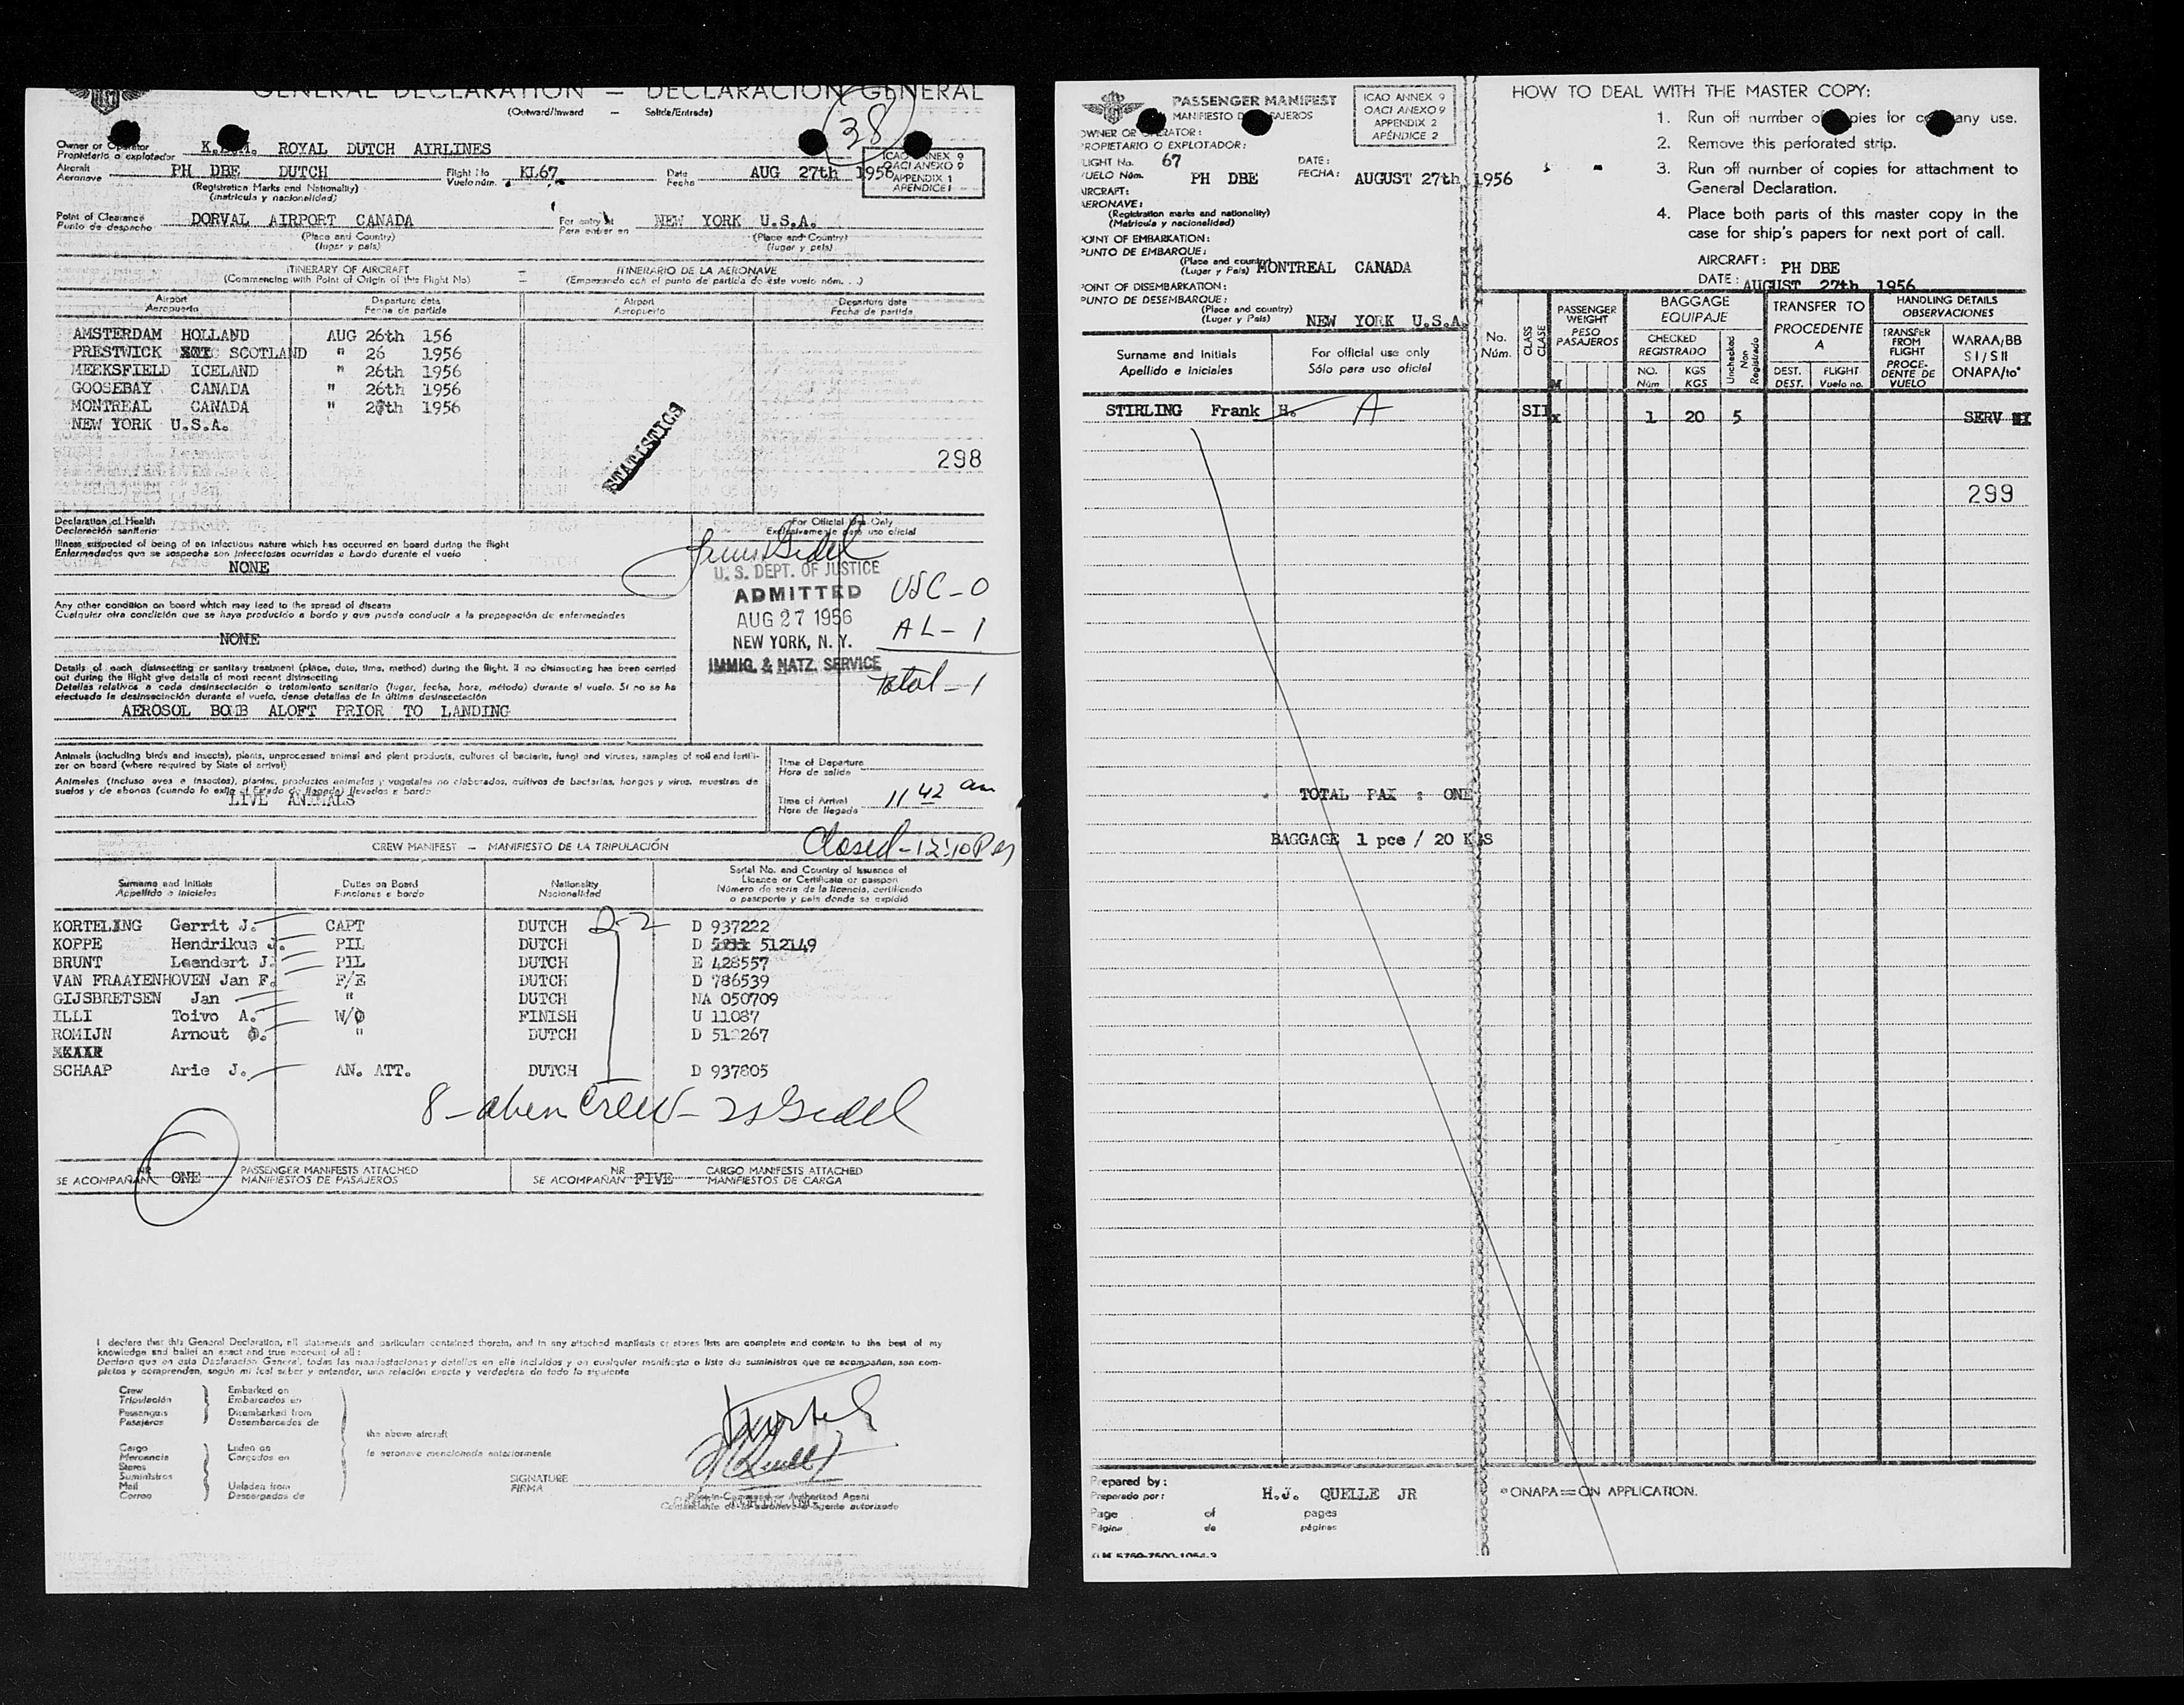 GENERAL DECLARATION — DECLARACION GENERAL
(Outward/Inward — Salida/Entrada)
38
Owner or Operator
Propietario o explotador
K.L.M. ROYAL DUTCH AIRLINES
ICAO ANNEX 9
OACI ANEXO 9
APPENDIX 1
APENDICE 1
Aircraft
Aeronave
PH DBE DUTCH
Flight No
Vuelo núm.
KL67
Date
Fecha
AUG 27th 1956
(Registration Marks and Nationality)
(matrícula y nacionalidad)
Point of Clearance
Punto de despacho
DORVAL AIRPORT CANADA
For entry at
Para entrar en
NEW YORK U.S.A.
(Place and Country)
(lugar y país)
(Place and Country)
(lugar y país)
ITINERARY OF AIRCRAFT — ITINERARIO DE LA AERONAVE
(Commencing with Point of Origin of this Flight No) (Empezando con el punto de partida de éste vuelo núm. . .)
Airport
Aeropuerto
Departure date
Fecha de partida
Airport
Aeropuerto
Departure date
Fecha de partida
AMSTERDAM HOLLAND AUG 26th 156
PRESTWICK SCOTLAND " 26 1956
MEEKSFIELD ICELAND " 26th 1956
GOOSEBAY CANADA " 26th 1956
MONTREAL CANADA " 27th 1956
NEW YORK U.S.A.
STATISTICS
298
Declaration of Health
Declaración sanitaria
Illness suspected of being of an infectious nature which has occurred on board during the flight
Enfermedades que se sospecha son infecciosas ocurridas a bordo durante el vuelo
NONE
Any other condition on board which may lead to the spread of disease
Cualquier otra condición que se haya producido a bordo y que pueda conducir a la propagación de enfermedades
NONE
Details of each disinsecting or sanitary treatment (place, date, time, method) during the flight. If no disinsecting has been carried
out during the flight give details of most recent disinsecting
Detalles relativos a cada desinsectación o tratamiento sanitario (lugar, fecha, hora, método) durante el vuelo. Si no se ha
efectuado la desinsectación durante el vuelo, dense detalles de la última desinsectación
AEROSOL BOMB ALOFT PRIOR TO LANDING
For Official Use Only
Exclusivamente para uso oficial
U. S. DEPT. OF JUSTICE
ADMITTED
AUG 27 1956
NEW YORK, N. Y.
IMMIG. & NATZ. SERVICE
USC - 0
AL - 1
Total - 1
Animals (including birds and insects), plants, unprocessed animal and plant products, cultures of bacteria, fungi and viruses, samples of soil and fertili-
zer on board (where required by State of arrival)
Animales (incluso aves e insectos), plantas, productos animales y vegetales no elaborados, cultivos de bacterias, hongos y virus, muestras de
suelos y de abonos (cuando lo exija el Estado de llegada) llevados a bordo
LIVE ANIMALS
Time of Departure
Hora de salida
Time of Arrival
Hora de llegada
11 42 am
Closed - 12:10 PM
CREW MANIFEST — MANIFIESTO DE LA TRIPULACIÓN
Surname and Initials
Appellido e iniciales
Duties on Board
Funciones a bordo
Nationality
Nacionalidad
Serial No. and Country of Issuance of
Licence or Certificate or passport
Número de serie de la licencia, certificado
o pasaporte y país donde se expidió
KORTELING Gerrit J. CAPT DUTCH D-2 D 937222
KOPPE Hendrikus J. PIL DUTCH D 512149
BRUNT Leendert J. PIL DUTCH E 428557
VAN FRAAYENHOVEN Jan F. F/E DUTCH D 786539
GIJSBRETSEN Jan " DUTCH NA 050709
ILLI Toivo A. W/O FINISH U 11087
ROMIJN Arnout " DUTCH D 512267
SCHAAP Arie J. AN. ATT. DUTCH D 937805
8 - alien Crew -
SE ACOMPAÑAN NR ONE PASSENGER MANIFESTS ATTACHED
MANIFIESTOS DE PASAJEROS
SE ACOMPAÑAN NR FIVE CARGO MANIFESTS ATTACHED
MANIFIESTOS DE CARGA
I declare that this General Declaration, all statements and particulars contained therein, and in any attached manifests or stores lists are complete and contain to the best of my
knowledge and belief an exact and true account of all:
Declaro que en esta Declaración General, todas las manifestaciones y detalles en ella incluidos y en cualquier manifiesto o lista de suministros que se acompañan, son com-
pletos y comprenden, según mi leal saber y entender, una relación exacta y verdadera de todo lo siguiente
Crew
Tripulación
Passengers
Pasajeros
Embarked on
Embarcados en
Disembarked from
Desembarcados de
the above aircraft
la aeronave mencionada anteriormente
Cargo
Mercancía
Stores
Suministros
Mail
Correo
Laden on
Cargados en
Unladen from
Descargados de
SIGNATURE
FIRMA
PASSENGER MANIFEST
MANIFIESTO DE PASAJEROS
ICAO ANNEX 9
OACI ANEXO 9
APPENDIX 2
APÉNDICE 2
OWNER OR OPERATOR:
PROPIETARIO O EXPLOTADOR:
FLIGHT No.
VUELO Núm.
67
DATE:
FECHA:
AUGUST 27th 1956
AIRCRAFT:
AERONAVE:
PH DBE
(Registration marks and nationality)
(Matrícula y nacionalidad)
POINT OF EMBARKATION:
PUNTO DE EMBARQUE:
(Place and country)
(Lugar y País)
MONTREAL CANADA
POINT OF DISEMBARKATION:
PUNTO DE DESEMBARQUE:
(Place and country)
(Lugar y País)
NEW YORK U.S.A.
HOW TO DEAL WITH THE MASTER COPY:
1. Run off number of copies for company use.
2. Remove this perforated strip.
3. Run off number of copies for attachment to
General Declaration.
4. Place both parts of this master copy in the
case for ship's papers for next port of call.
AIRCRAFT: PH DBE
DATE: AUGUST 27th 1956
Surname and Initials
Apellido e Iniciales
For official use only
Sólo para uso oficial
No.
Núm.
CLASS
CLASE
PASSENGER
WEIGHT
PESO
PASAJEROS
M
BAGGAGE
EQUIPAJE
CHECKED
REGISTRADO
NO.
Núm
KGS
KGS
Unchecked
Non
Registrado
TRANSFER TO
PROCEDENTE
A
DEST.
DEST.
FLIGHT
Vuelo no.
HANDLING DETAILS
OBSERVACIONES
TRANSFER
FROM
FLIGHT
PROCE-
DENTE DE
VUELO
WARAA/BB
SI/SII
ONAPA/to*
STIRLING Frank H. A SII x 1 20 5 SERV
299
TOTAL PAX : ONE
BAGGAGE 1 pce / 20 KGS
Prepared by:
Preparado por:
H.J. QUELLE JR
Page of pages
Página de páginas
*ONAPA=ON APPLICATION.